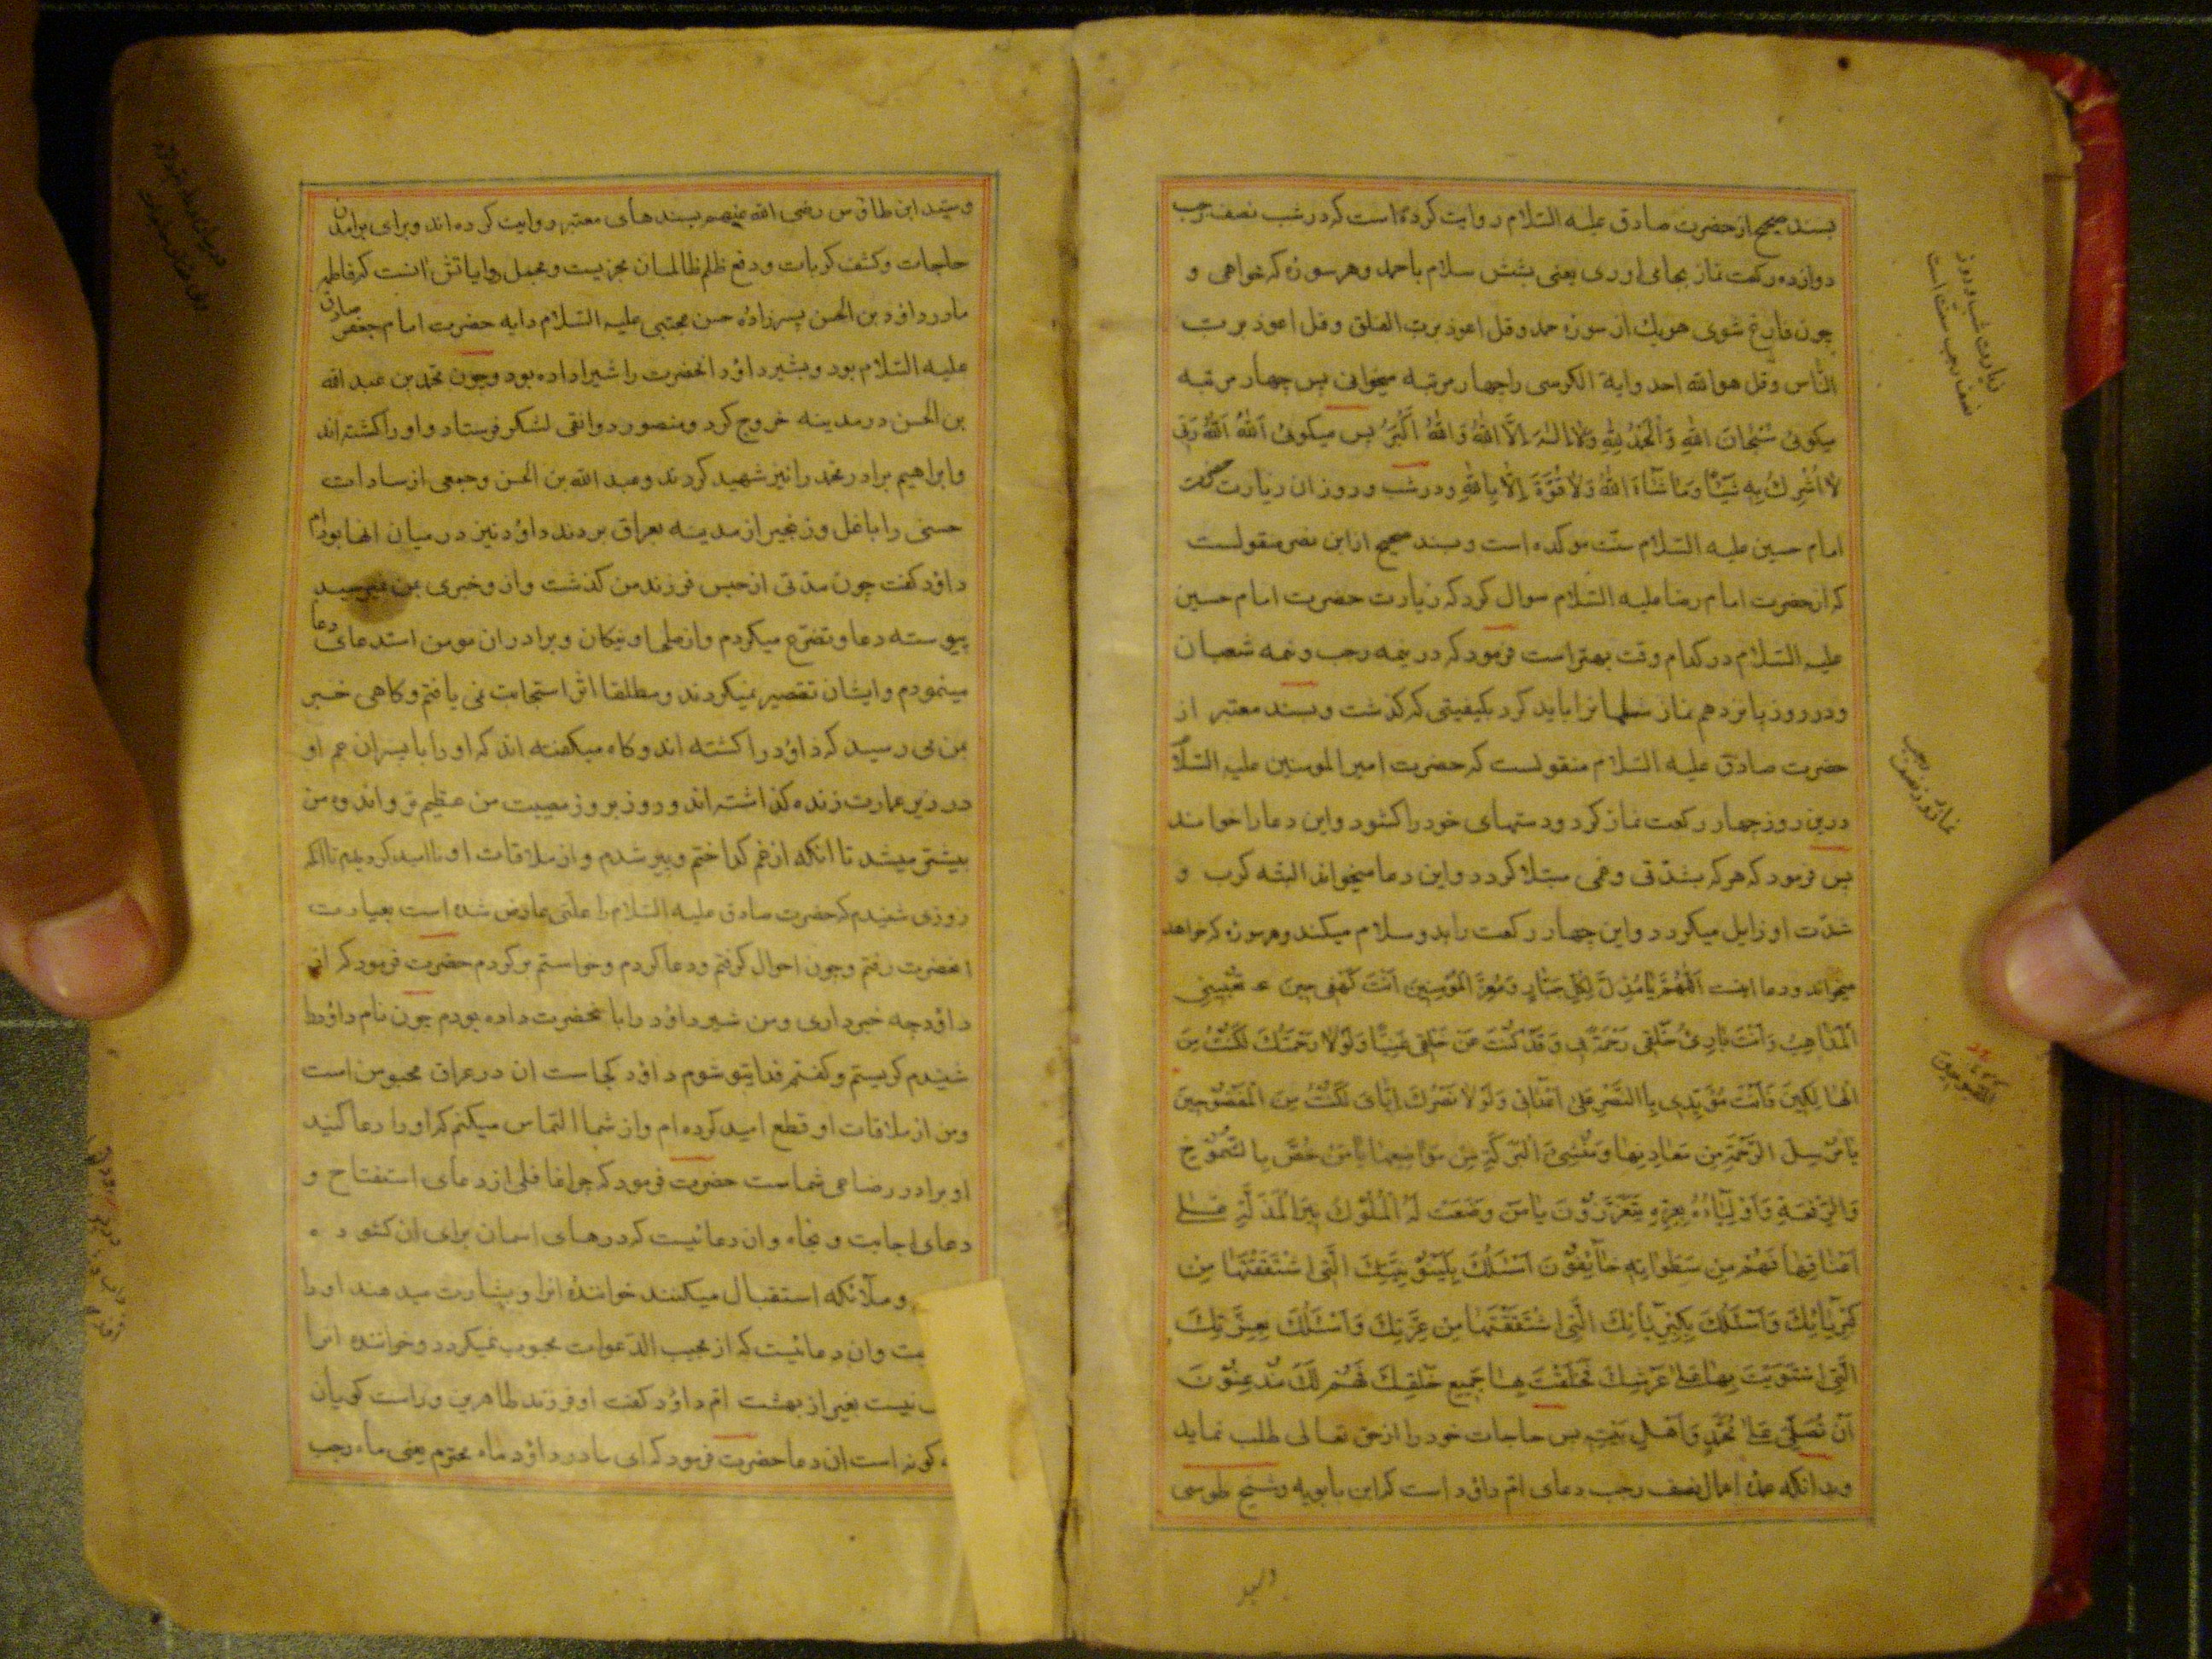 بسند صحیح از حضرت صادق علیه السّلام روایت کرده است که در شب نصف رجب
دوازده رکعت نماز بجامی اوری یعنی بشش سلام باحمد و هر سوره که خواهی و
چون فارغ شوی هریك از سوره حمد و قل اعوذ برب الفلق و قل اعوذ برب
النّاس و قل هو الله احد و ایة الکرسی را چهار مرتبه میخوانی پس چهار مرتبه
میکوئی سُبْحانَ اللهِ وَالْحَمْدُ لِلهِ وَلا اِلٰهَ اِلَّا اللهُ وَاللهُ اَکْبَرُ پس میکوئی اَللهُ اَللهُ رَبّی
لا اُشْرِكُ بِهِ شَیْئًا وَما شاءَ اللهُ وَلا قُوَّةَ اِلّا بِاللهِ و در شب و روز ان زیارت حضرت
امام حسین علیه السّلام سنّت موکده است و بسند صحیح از ابن نصر منقولست
که از حضرت امام رضا علیه السّلام سوال کرد که زیارت حضرت امام حسین
علیه السّلام در کدام وقت بهتر است فرمود که در نیمه رجب و نیمه شعبان
و در روز پانزدهم نماز سلمانرا باید کرد بکیفیتی که کذشت و بسند معتبر از
حضرت صادق علیه السّلام منقولست که حضرت امیر المومنین علیه السّلام
درین روز چهار رکعت نماز کرد و دستهای خود را کشود و این دعا را خواندند
پس فرمود که هر که بشدّتی و غمی مبتلا کردد و این دعا میخواند البته کرب و
شدّت او زایل میکردد و این چهار رکعت را بدو سلام میکند و هر سوره که خواهد
میخواند و دعا اینست اَللّهُمَّ یا مُذِلَّ کُلِّ جَبّارٍ وَمُعِزَّ الْمُؤْمِنینَ اَنْتَ کَهْفی حینَ تُعْیینِی
الْمَذاهِبُ وَاَنْتَ بارِئُ خَلْقی رَحْمَةً بی وَقَدْ کُنْتَ عَنْ خَلْقی غَنِیًّا وَلَوْلا رَحْمَتُكَ لَکُنْتُ مِنَ
الْهالِکینَ وَاَنْتَ مُؤَیِّدی بِالنَّصْرِ عَلی اَعْدائی وَلَوْلا نَصْرُكَ اِیّایَ لَکُنْتُ مِنَ الْمَفْضُوحینَ
یا مُرْسِلَ الرَّحْمَةِ مِنْ مَعادِنِها وَمُنْشِئَ الْبَرَکَةِ مِنْ مَواضِعِها یا مَنْ خَصَّ بِالشُّمُوخِ
وَالرِّفْعَةِ وَاَوْلِیاؤُهُ بِعِزِّهِ یَتَعَزَّزُونَ یا مَنْ وَضَعَتْ لَهُ الْمُلُوكُ نیرَ الْمَذَلَّةِ عَلی
اَعْناقِها فَهُمْ مِنْ سَطَواتِهِ خائِفُونَ اَسْئَلُكَ بِکَیْنُونِیَّتِكَ الَّتی اشْتَقَقْتَها مِنْ
کِبْرِیائِكَ وَاَسْئَلُكَ بِکِبْرِیائِكَ الَّتی اشْتَقَقْتَها مِنْ عِزَّتِكَ وَاَسْئَلُكَ بِعِزَّتِكَ
الَّتی اسْتَوَیْتَ بِها عَلی عَرْشِكَ فَخَلَقْتَ بِها جَمیعَ خَلْقِكَ فَهُمْ لَكَ مُذْعِنُونَ
اَنْ تُصَلِّیَ عَلی مُحَمَّدٍ وَاَهْلِ بَیْتِهِ پس حاجات خود را از حق تعالی طلب نماید
و بدانکه عمده اعمال نصف رجب دعای امّ داؤد است که ابن بابویه و شیخ طوسی
زیارت شب و روز
نصف رجب سنت است
نماز روز نصف رجب
وسید
وسید ابن طاؤس رضی الله عنهم بسندهای معتبر روایت کرده اند و برای برامدن
حاجات و کشف کربات و دفع ظلم ظالمان مجربست و مجمل روایاتش انست که فاطمه
مادر داؤد بن الحسن پسرزاده حسن مجتبی علیه السّلام دایه حضرت امام جعفر صادق
علیه السّلام بود و بشیر داؤد انحضرت را شیر داده بود و چون محمّد بن عبد الله
بن الحسن در مدینه خروج کرد و منصور دوانقی لشکر فرستاد و او را کشته اند
و ابراهیم برادر محمّد را نیز شهید کردند و عبد الله بن الحسن و جمعی از سادات
حسنی را با غل و زنجیر از مدینه بعراق بردند داؤد نیز در میان انها بود امّ
داؤد کفت چون مدّتی از حبس فرزند من کذشت و از و خبری بمن نمیرسید
پیوسته دعا و تضرّع میکردم و از صلحا و نیکان و برادران مومن استدعای دعا
مینمودم و ایشان تقصیر نمیکردند و مطلقا اثر استجابت نمی یافتم و کاهی خبر
بمن می رسید که داؤد را کشته اند و کاه میکفته اند که او را با پسران عم او
در زیر عمارت زنده کذاشته اند و روز بروز مصیبت من عظیم تر و اندوه من
بیشتر میشد تا انکه از غم کداختم و پیر شدم و از ملاقات او نا امید کردیدم تا انکه
روزی شنیدم که حضرت صادق علیه السّلام را علّتی عارض شده است بعیادت
انحضرت رفتم و چون احوال کرفتم و دعا کردم و خواستم برکردم حضرت فرمود که از
داؤد چه خبر داری و من شیر داؤد را با نحضرت داده بودم چون نام داؤد را
شنیدم کریستم و کفتم فدایتو شوم داؤد کجاست ان در عراق محبوس است
و من از ملاقات او قطع امید کرده ام و از شما التماس میکنم که او را دعا کنید
او برادر رضاعی شماست حضرت فرمود که چرا غافلی از دعای استفتاح و
دعای اجابت و نجاه و ان دعائیست که درهای اسمان برای ان کشود ه
و ملائکه استقبال میکنند خواننده انرا و بشارت میدهند او را
و ان دعائیست که از مجیب الدّعوات محجوب نمیکردد و خواننده انرا
نیست بغیر از بهشت امّ داؤد کفت او فرزند طاهرین و راست کویان
کونه است ان دعا حضرت فرمود که ای مادر داؤد ماه محترم یعنی ماه رجب